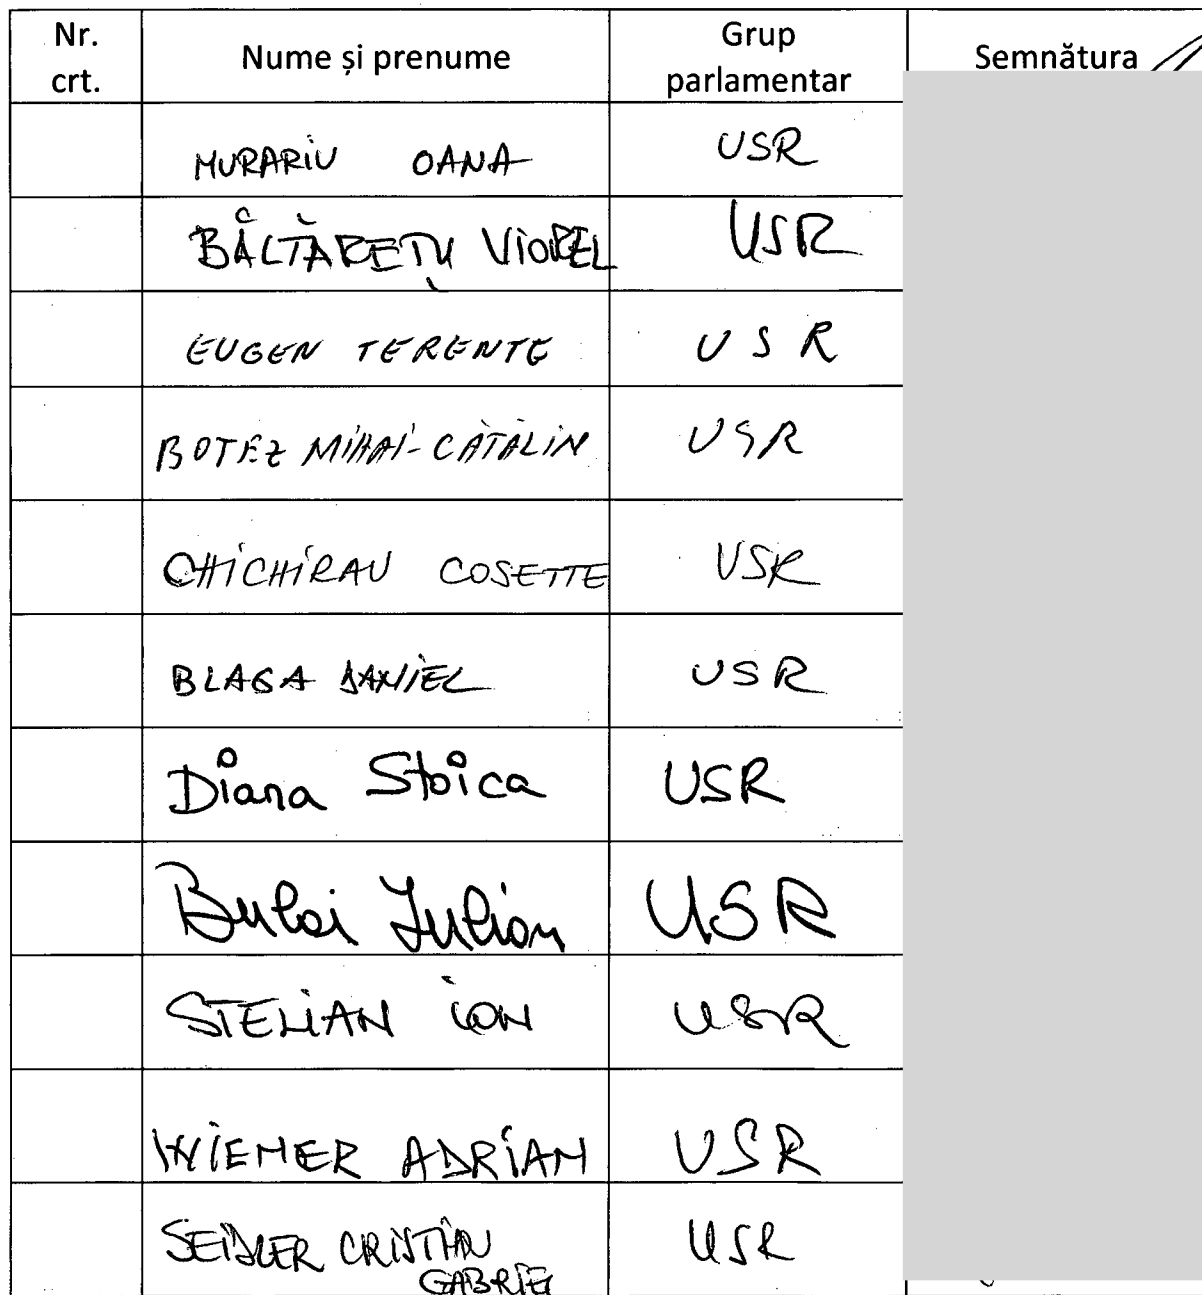 Nr. crt. Nume și prenume Grup parlamentar Semnătura
MURARIU OANA USR
BÂLTĂREȚU VIOREL USR
EUGEN TERENTE USR
BOTEZ MIHAI-CĂTĂLIN USR
CHICHIRĂU COSETTE USR
BLAGA DANIEL USR
Diana Stoica USR
Bulai Iulian USR
STELIAN ION USR
WIENER ADRIAN USR
SEIDLER CRISTIAN USR
GABRIEL